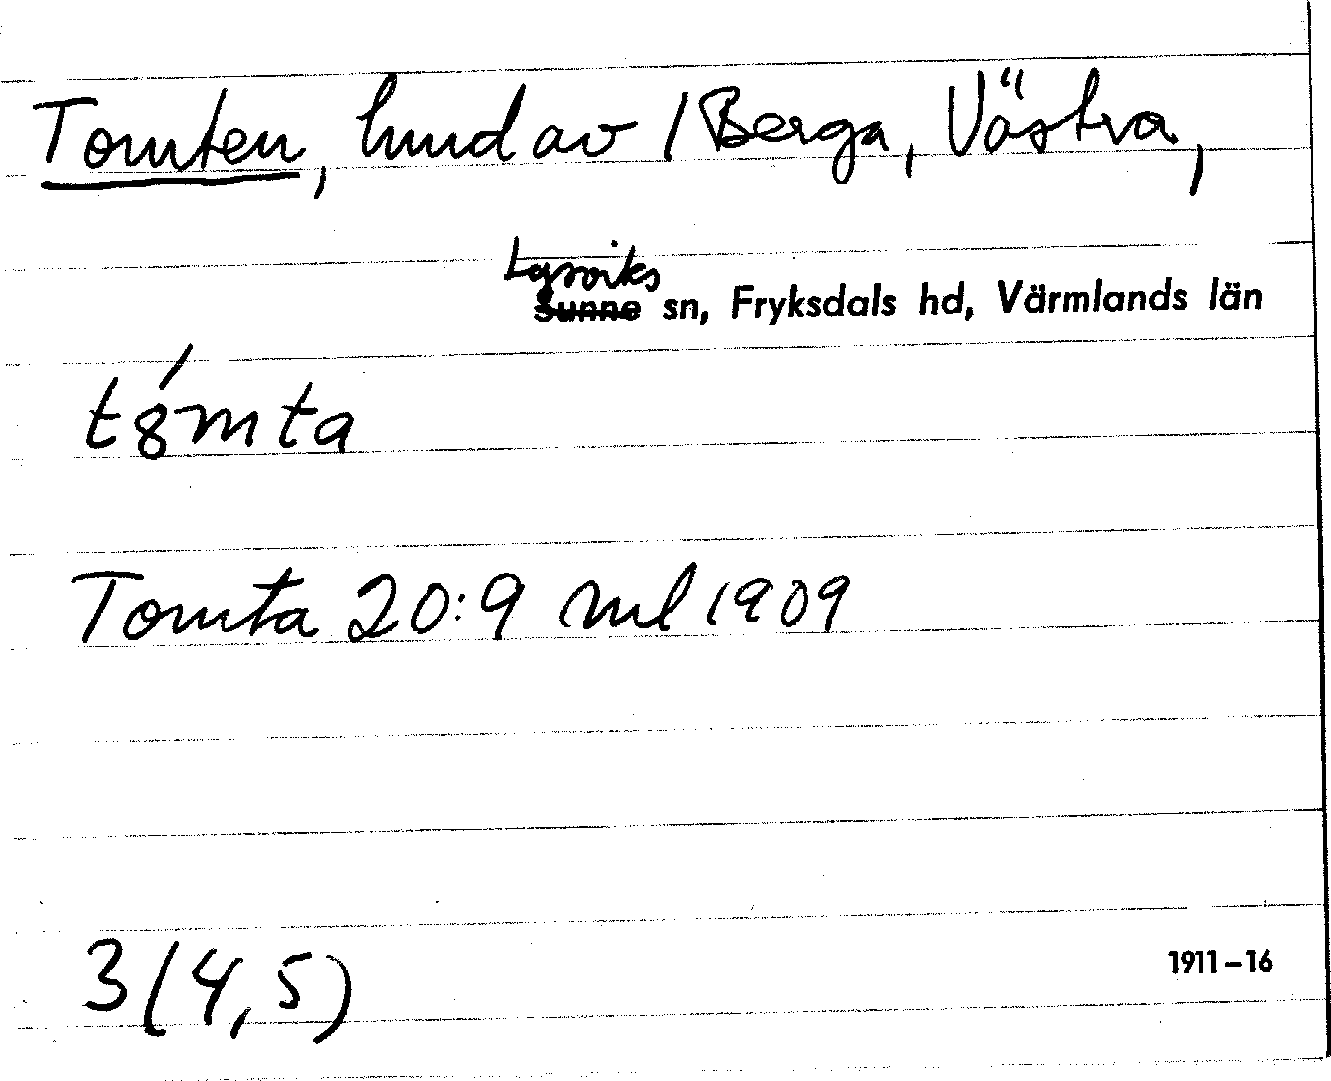 Tomten, hmd av / Berga, Västra,
Lysviks
Sunne sn, Fryksdals hd, Värmlands län
tȣ́mta
Tomta 20:9 ml 1909
3(4,5)
1911-16